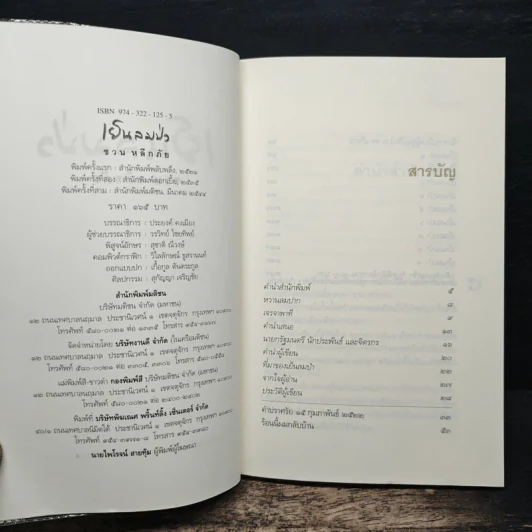 ISBN 974 - 322 - 125 - 3
เย็นลมป่า
ชวน หลีกภัย
พิมพ์ครั้งแรก : สำนักพิมพ์พลับพลึง, ๒๕๒๑
พิมพ์ครั้งที่สอง : สำนักพิมพ์ดอกเบี้ย, ๒๕๓๕
พิมพ์ครั้งที่สาม : สำนักพิมพ์มติชน, มีนาคม ๒๕๔๔
ราคา ๑๖๕ บาท
บรรณาธิการ : ประยงค์ คงเมือง
ผู้ช่วยบรรณาธิการ : วรวิทย์ ไชยทิพย์
พิสูจน์อักษร : สุชาติ
คอมพิวต์กราฟิก : วิไลลักษณ์
ออกแบบปก : เกื้อกูล ตันตระกูล
ศิลปกรรม : สุกัญญา เจริญชัย
สำนักพิมพ์มติชน
บริษัทมติชน จำกัด (มหาชน)
๑๒ ถนนเทศบาลนฤมาล ประชานิเวศน์ ๑ เขตจตุจักร กรุงเทพฯ ๑๐๙๐๐
โทรศัพท์ ๕๘๐-๐๐๒๑ ต่อ ๑๢๓๕ โทรสาร
จัดจำหน่ายโดย บริษัทงานดี จำกัด (ในเครือมติชน)
๑๒ ถนนเทศบาลนฤมาล ประชานิเวศน์ ๑ เขตจตุจักร กรุงเทพฯ ๑๐๙๐๐
โทรศัพท์ ๕๘๐-๐๐๒๑ ต่อ โทรสาร
แม่พิมพ์สี-ขาวดำ กองพิมพ์สี บริษัทมติชน จำกัด (มหาชน)
๑๒ ถนนเทศบาลนฤมาล ประชานิเวศน์ ๑ เขตจตุจักร กรุงเทพฯ ๑๐๙๐๐
โทรศัพท์ ๕๘๐-๐๐๒๑ ต่อ
พิมพ์ที่ บริษัทพิฆเณศ พริ้นท์ติ้ง เซ็นเตอร์ จำกัด
ถนนเทศบาลนิมิตใต้ ประชานิเวศน์ ๑ เขตจตุจักร กรุงเทพฯ ๑๐๙๐๐
โทรศัพท์ โทรสาร
นายไพโรจน์ สายทุ้ม ผู้พิมพ์ผู้โฆษณา
สารบัญ
คำนำสำนักพิมพ์ ๕
หวานลมปาก ๘
เจรจาพาที ๙
คำนำเสนอ ๑๓
นายกรัฐมนตรี นักประพันธ์ และจิตรกร ๑๖
คำนำผู้เขียน ๒๐
ที่มาของเย็นลมป่า ๒๒
จากใจผู้อ่าน ๒๗
ประวัติผู้เขียน ๒๘
คำปราศรัย ๑๕ กุมภาพันธ์ ๒๕๑๒ ๓๓
ร้อนนี้ผมกลับบ้าน ๕๓